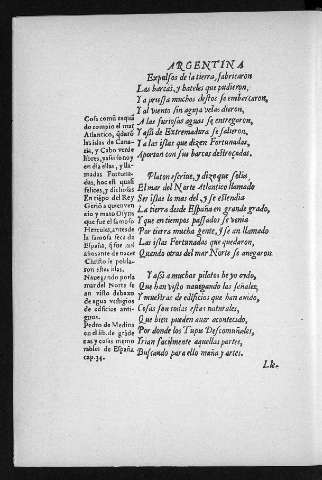 ARGENTINA
Expulsos de la tierra, fabricaron
Las barcas, y bateles que pudieron,
Y a priessa muchos destos se embarcaron,
Y al viento sin aguja velas dieron,
A las furiosas aguas se entregaron,
Y assi de Estremadura se salieron,
Y a las islas que dizen Fortunadas,
Aportan con sus barcas destroçadas.
Platon escrive, y dize que solia,
El mar del Norte Atlantico llamado
Ser islas lo mas del, y se estendia
La tierra desde España en grande grado,
Y que en tiempos passados se venia
Por tierra mucha gente, y se an llamado
Las islas Fortunadas que quedaron,
Quando otras del mar Norte se anegaron.
Y assi a muchos pilotos he yo oydo,
Que han visto navegando las señales,
Y muestras de edificios que han avido,
Cosas son todas estas naturales,
Que bien pueden aver acontecido,
Por donde los Tupis Descomunales,
Irian facilmente aquellas partes,
Buscando para ello maña y artes.
Cosa comũ es aqui
do rompio el mar
Atlantico, q̃daró
las islas de Cana-
ria, y Cabo verde
libres, y assi son oy
en dia ellas, y lla-
madas Fortuna-
das, hoc est quasi
felices, y dichosas
En tiẽpo del Rey
Geriõ a quien ven
cio y mato Osyris
que fue el famoso
Hercules, antes de
la famosa seca de
España, q̃ fue mil
años ante de nacer
Christo se pobla-
ron estas islas.
Navegando por la
mar del Norte se
an visto debaxo
de agua vestigios
de edificios anti-
guos.
Pedro de Medina
en el lib. de grãde
zas y cosas memo
rables de España
cap. 34.